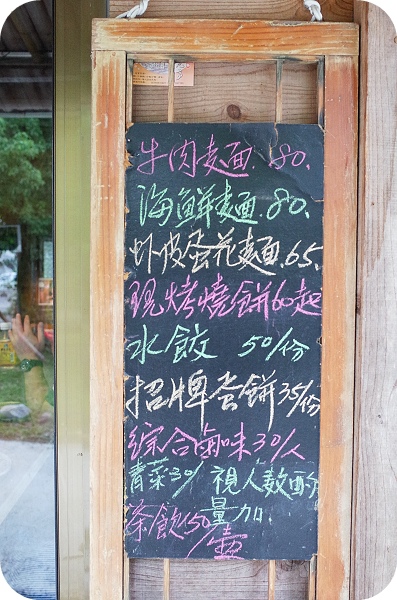 牛肉麵 80.
海鮮麵.80.
虾皮蛋花麵.65.
現烤燒餅60起
水餃 50/份
招牌蛋餅35/份
綜合滷味30/人
青菜30/ 視人數酌
量加.
茶飲150/壺